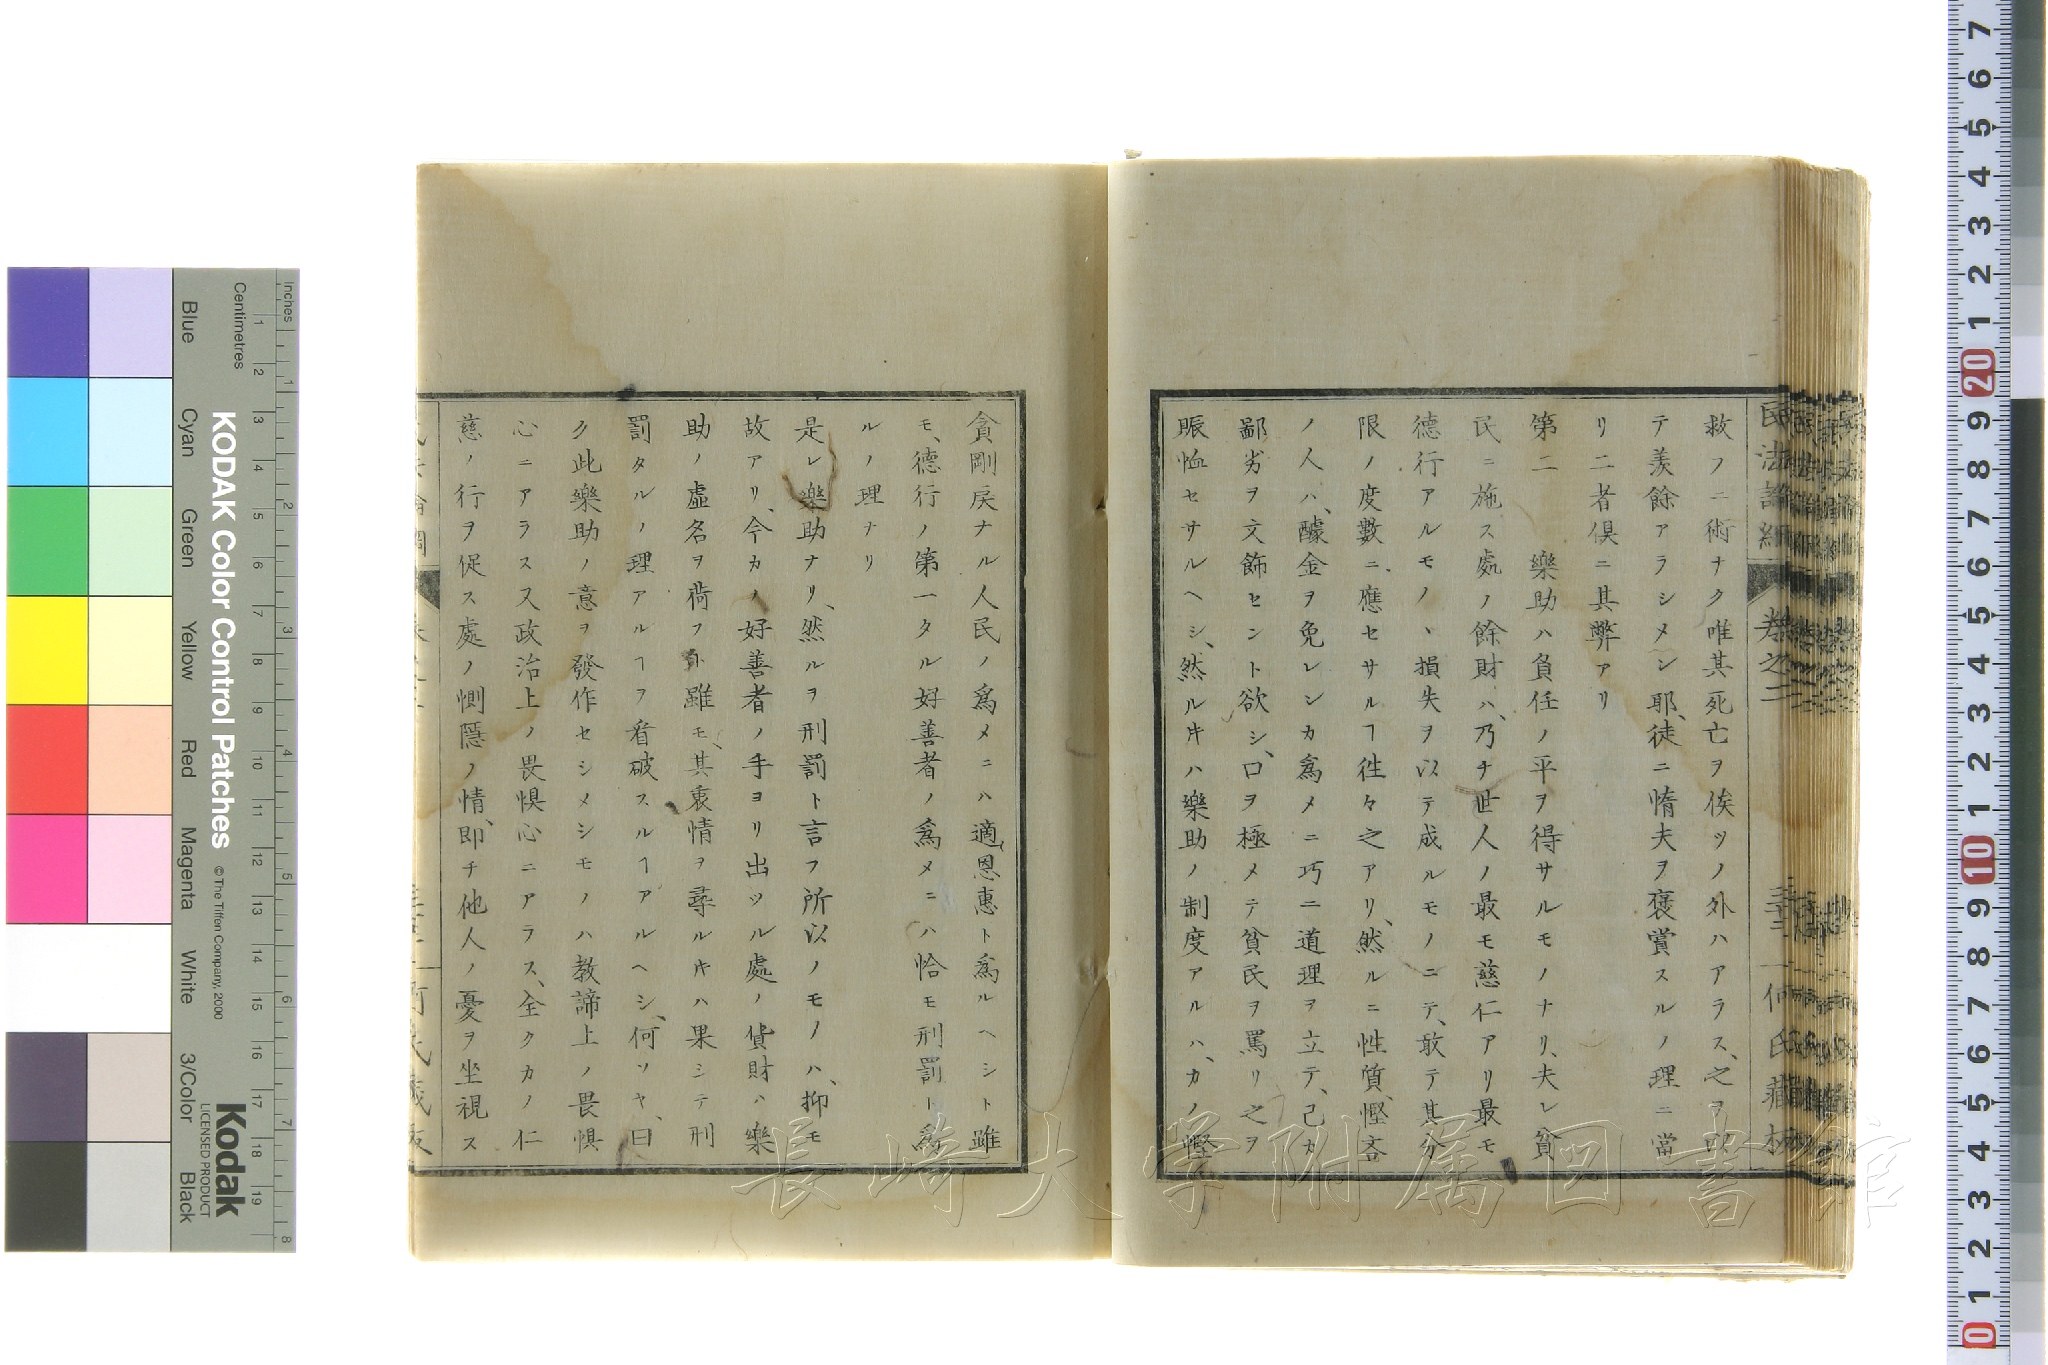 民法論綱 巻之二 何氏藏板
救フニ術ナク唯其死亡ヲ俟ツノ外ハアラス、之ヲ
テ羨餘アラシメン耶、徒ニ惰夫ヲ褒賞スルノ理ニ當
リ二者倶ニ其弊アリ
第二 樂助ハ負任ノ平ヲ得サルモノナリ、夫レ貧
民ニ施ス處ノ餘財ハ、乃チ世人ノ最モ慈仁アリ最モ
德行アルモノヽ損失ヲ以テ成ルモノニテ、敢テ其分
限ノ度數ニ應セサルヿ徃々之アリ、然ルニ性質慳吝
ノ人ハ、醵金ヲ免レンカ爲メニ巧ニ道理ヲ立テ、己カ
鄙劣ヲ文飾セント欲シ、口ヲ極メテ貧民ヲ罵リ之ヲ
賑恤セサルヘシ、然ル𪜈ハ樂助ノ制度アルハ、カノ慳
貪剛戻ナル人民ノ爲メニハ適恩惠ト爲ルヘシト雖
モ、德行ノ第一タル好善者ノ爲メニハ恰モ刑罰ト爲
ルノ理ナリ
是レ樂助ナリ、然ルヲ刑罰ト言フ所以ノモノハ、抑モ
故アリ、今カノ好善者ノ手ヨリ出ツル處ノ貨財ハ樂
助ノ虛名ヲ荷フト雖モ、其衷情ヲ尋ル𪜈ハ果シテ刑
罰タルノ理アルヿヲ看破スルヿアルヘシ、何ソヤ、曰
ク此樂助ノ意ヲ發作セシメシモノハ教諦上ノ畏惧
心ニアラス又政治上ノ畏惧心ニアラス、全クカノ仁
慈ノ行ヲ促ス處ノ惻隱ノ情、即チ他人ノ憂ヲ坐視ス
長崎大学附属図書館
KODAK Color Control Patches
© The Tiffen Company, 2000
Kodak
LICENSED PRODUCT
Inches
Centimetres
Blue Cyan Green Yellow Red Magenta White 3/Color Black